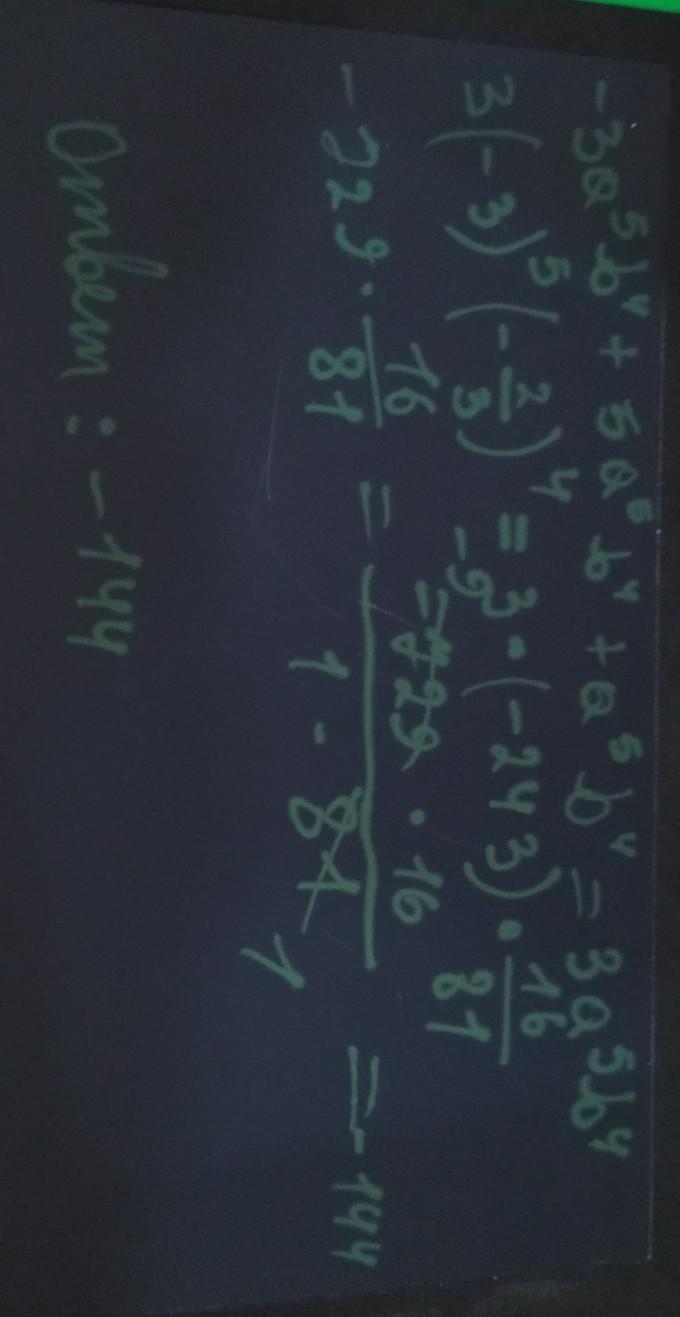 -3a⁵b⁴ + 5a⁵b⁴ + a⁵b⁴ = 3a⁵b⁴
3(-3)⁵(-2/3)⁴ = 3·(-243)·16/81
-729·16/81 = -9 -729·16 / 1·81 1 = -144
Ответ: -144